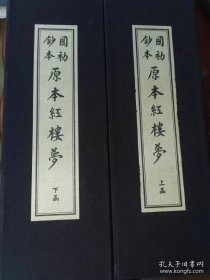 國初
鈔本
原本紅樓夢
上函
國初
鈔本
原本紅樓夢
下函
孔夫子旧书网